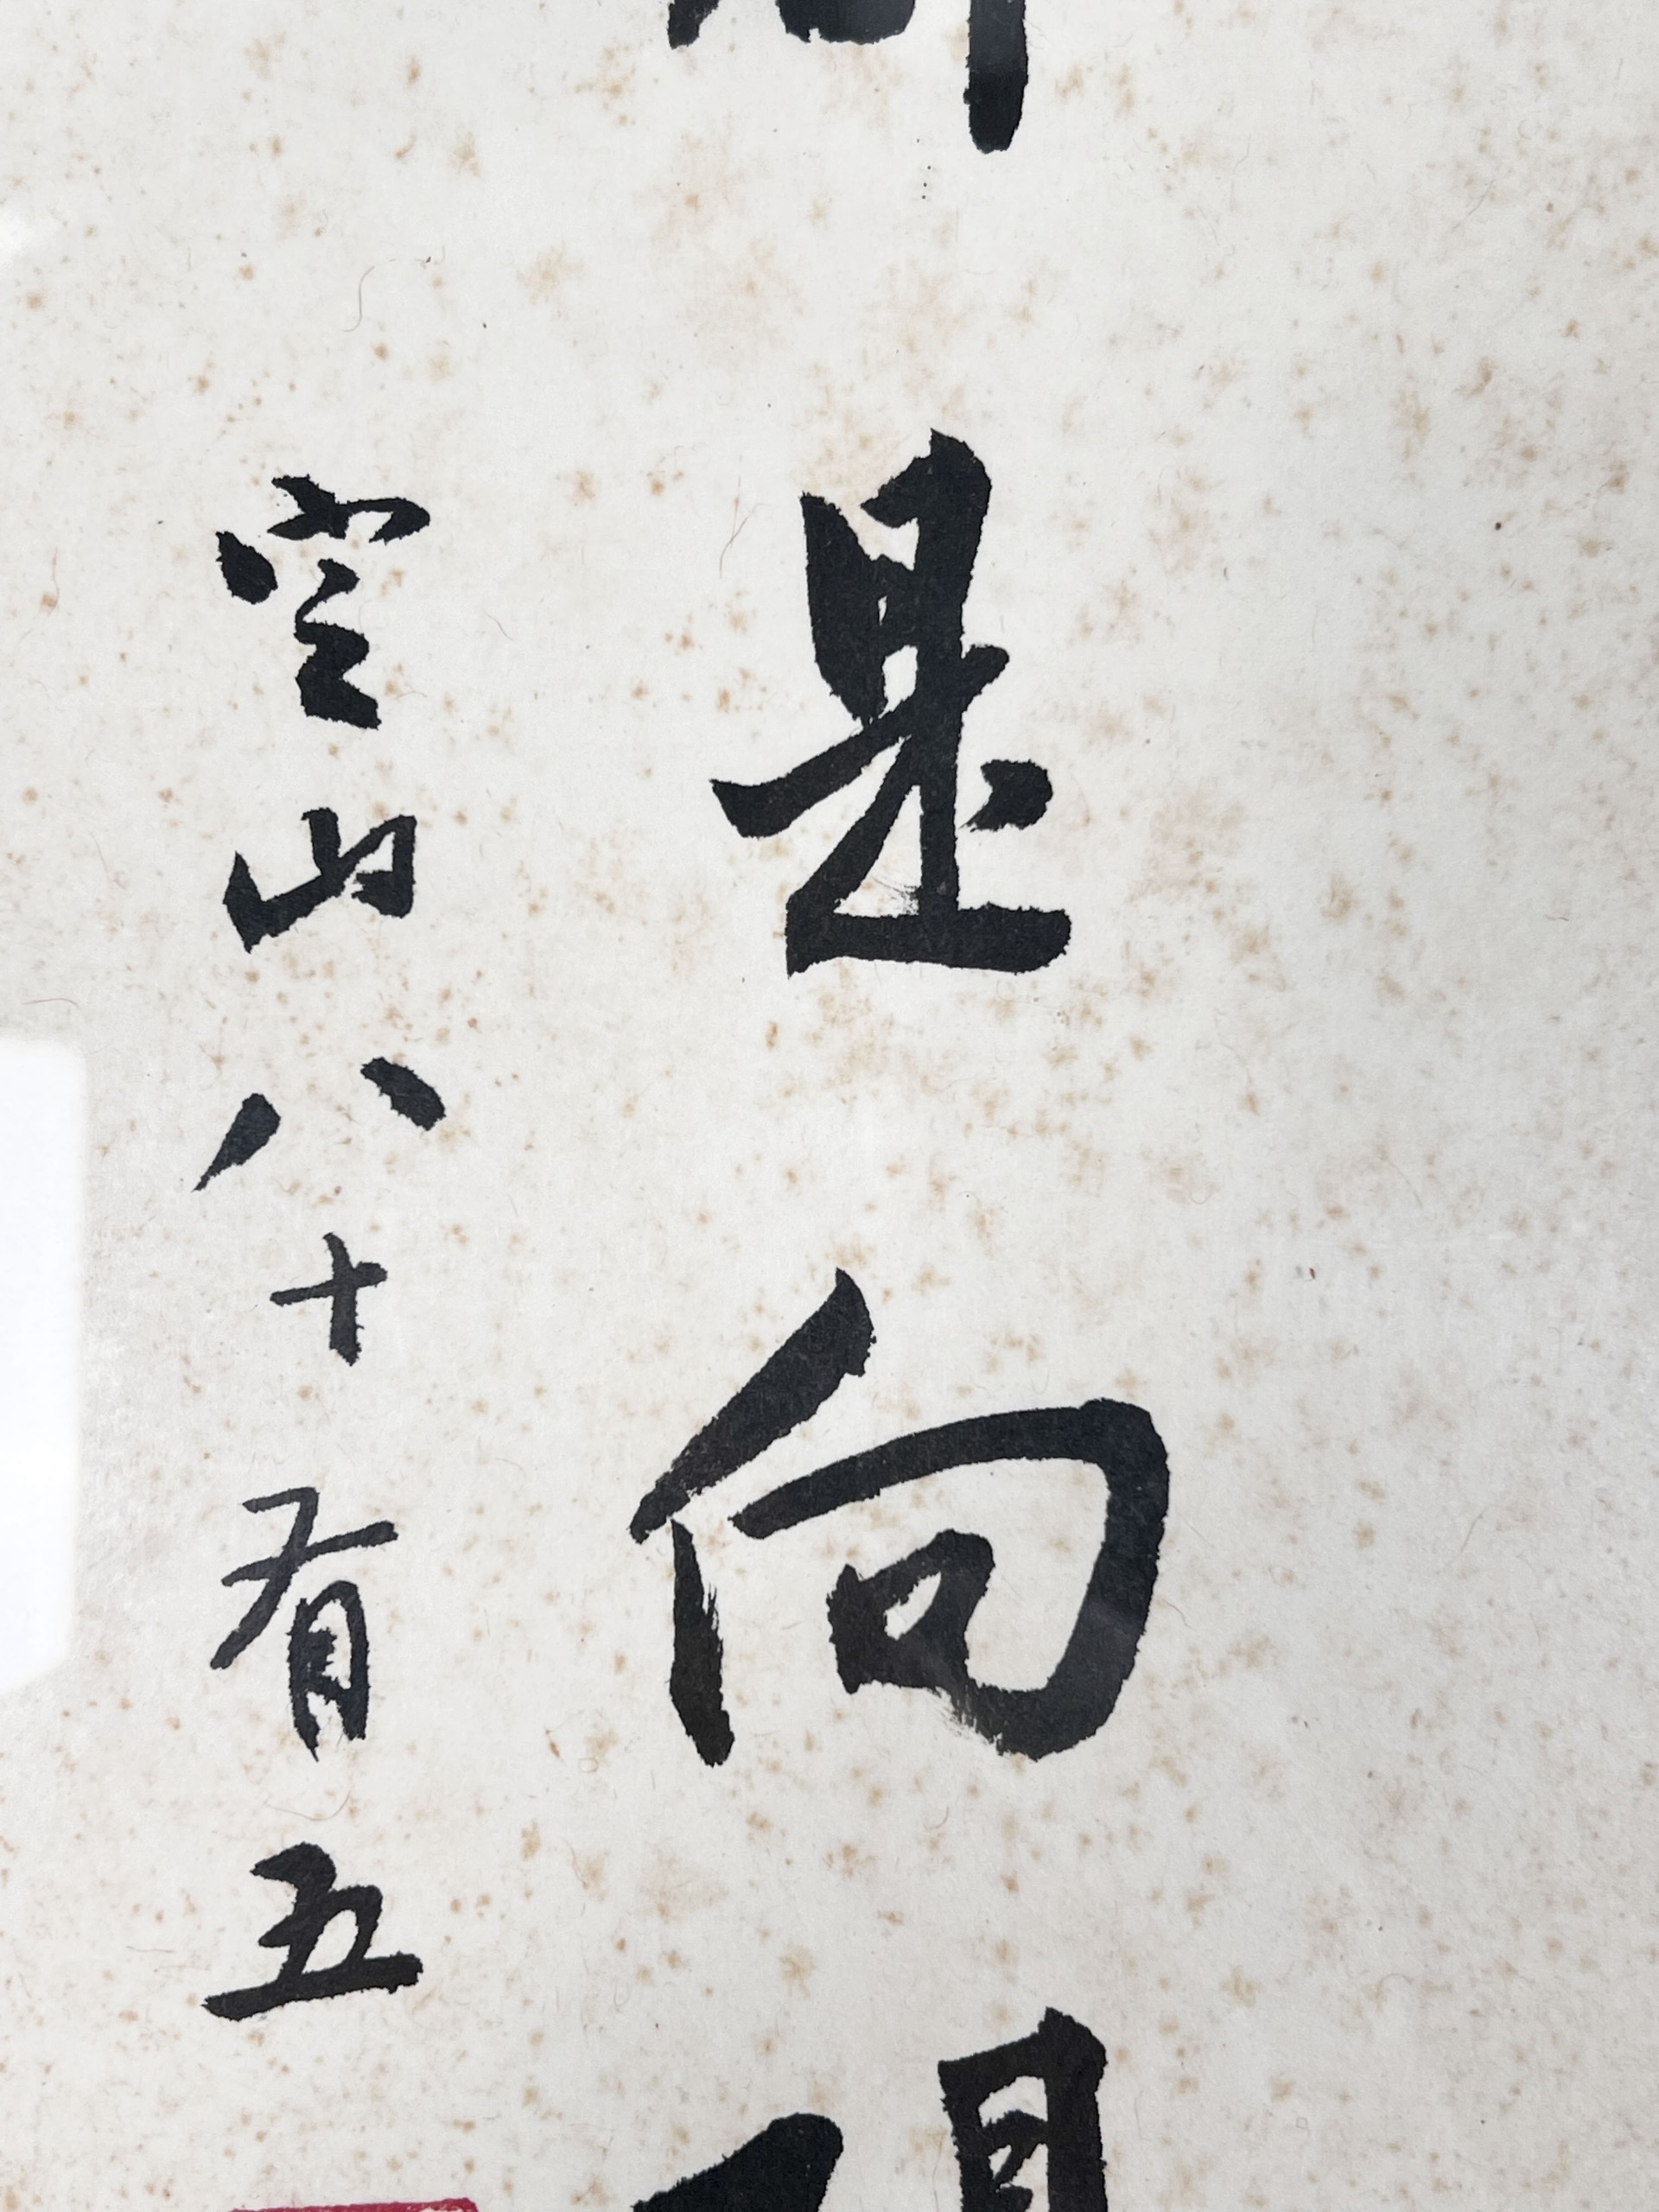 是向
空山八十有五